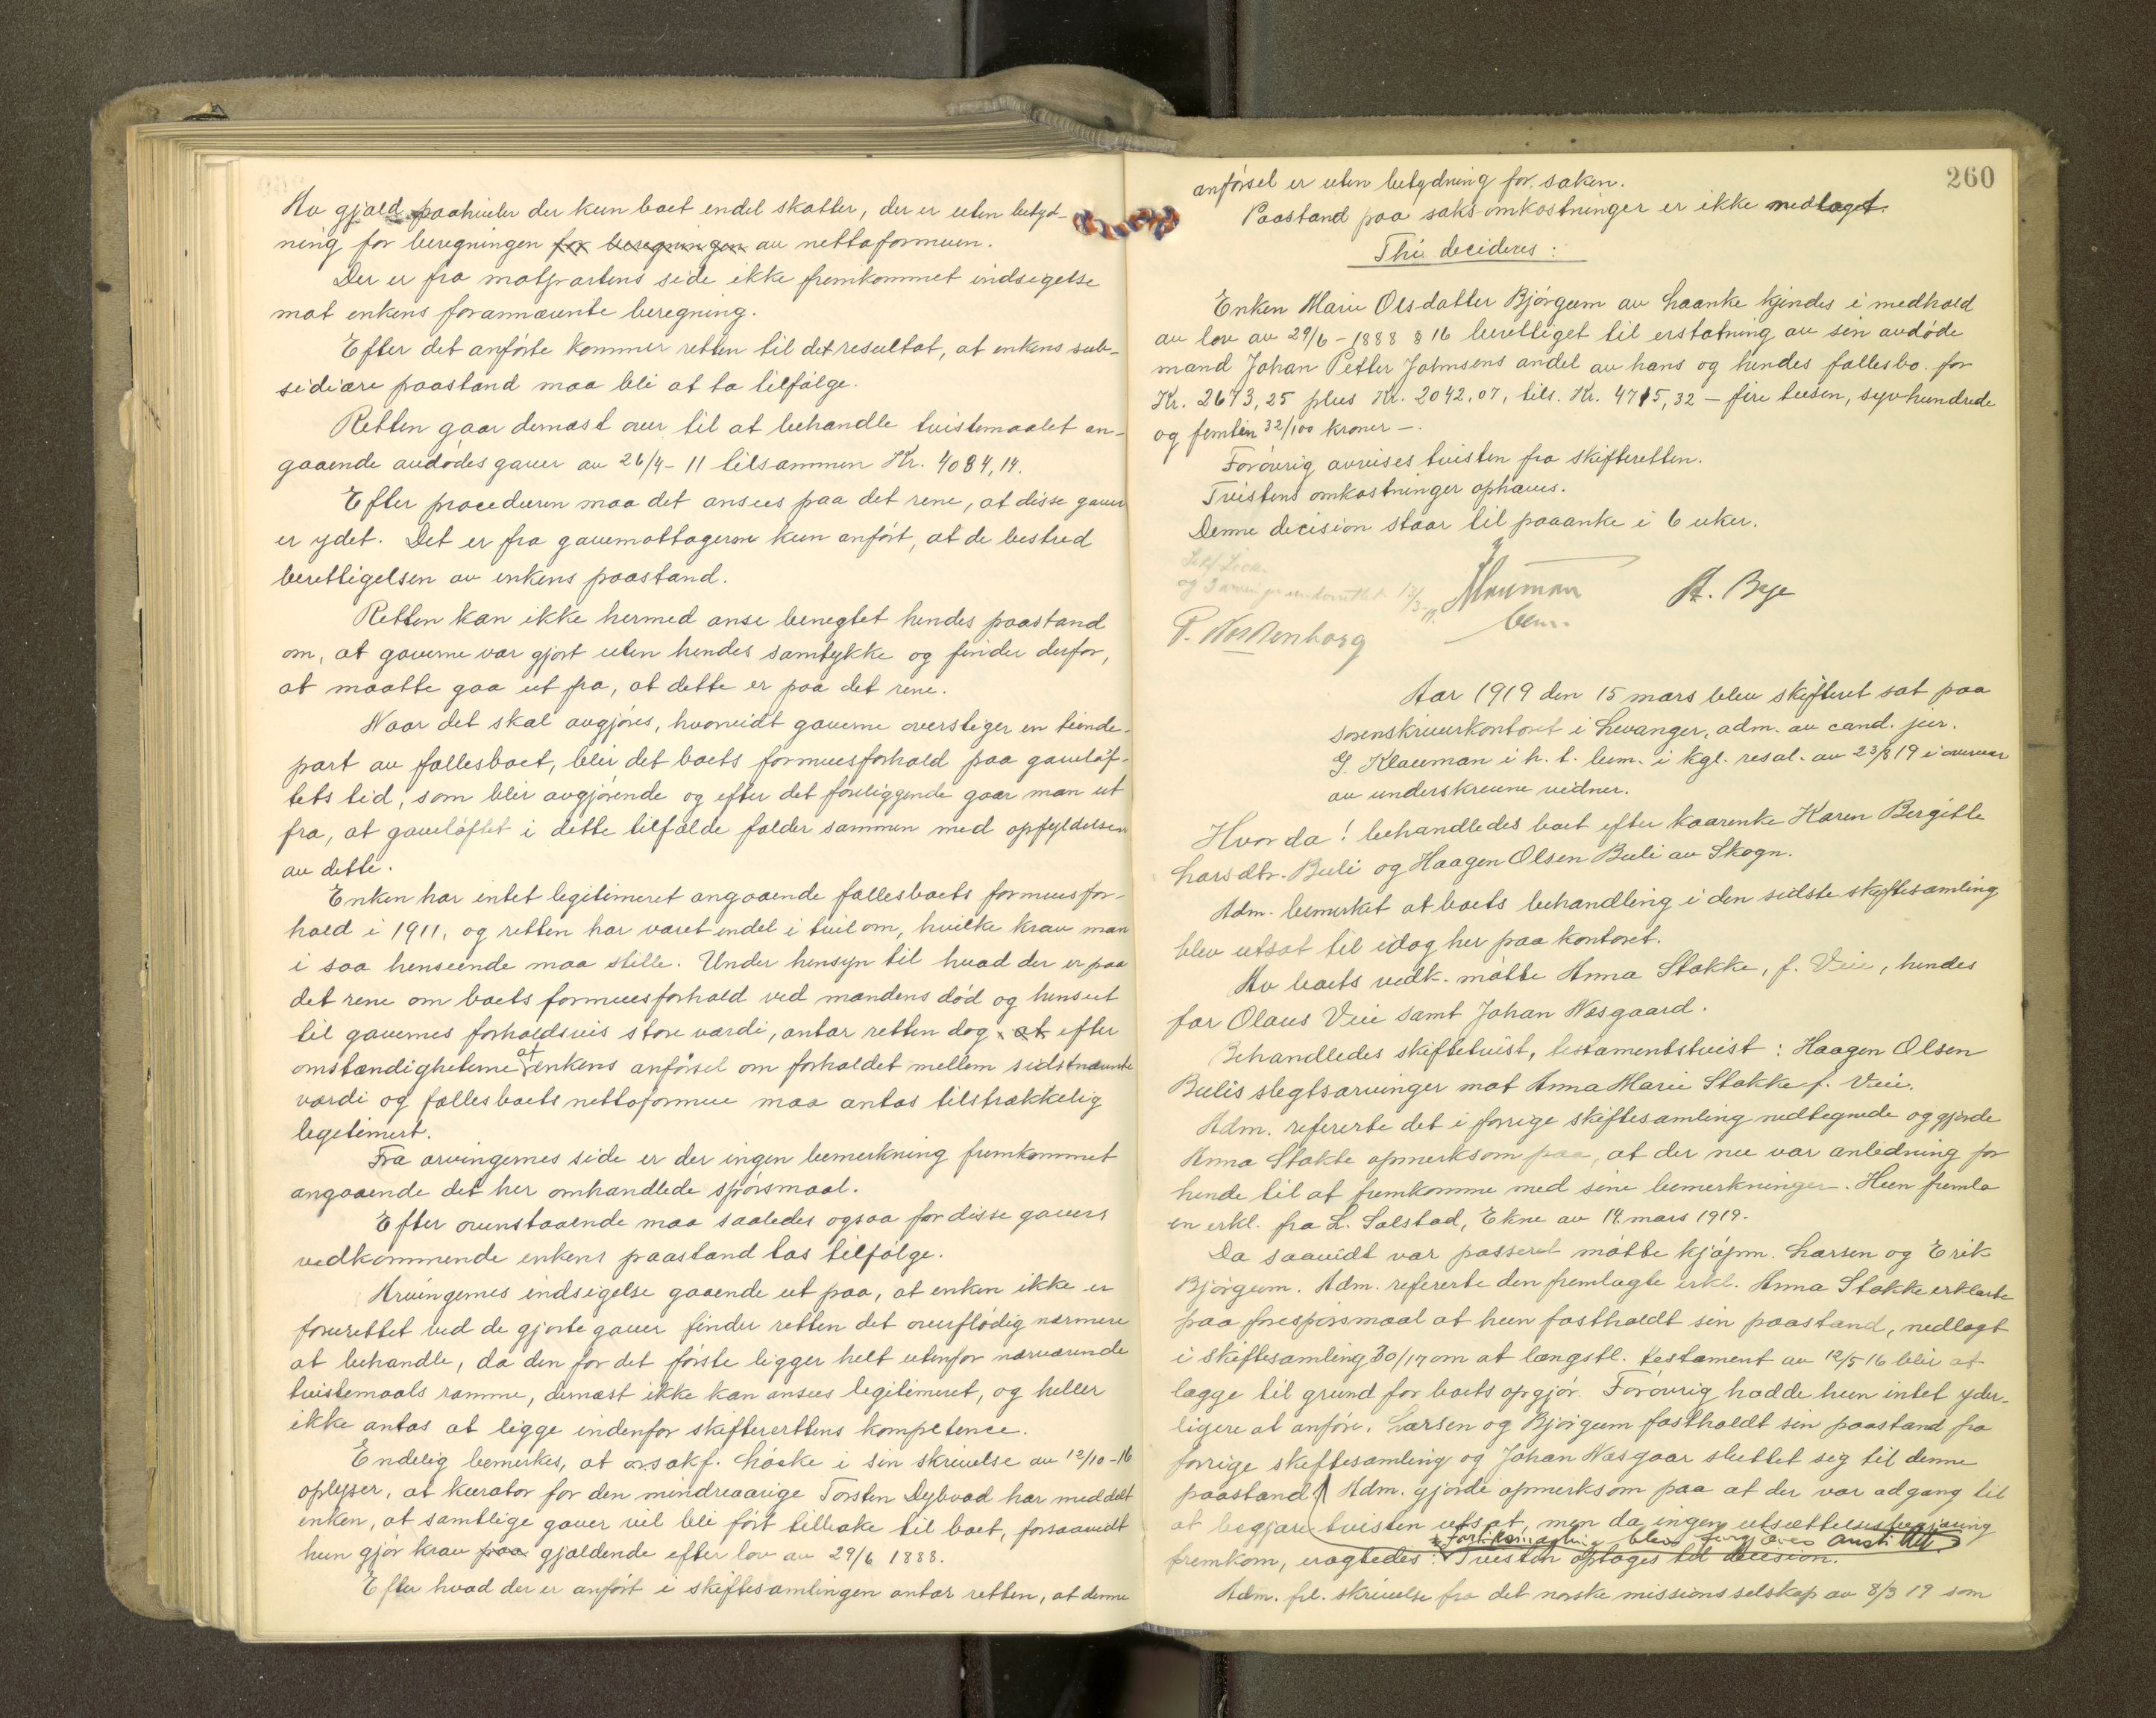 Av gjæld paahviler der kun boet endel skatter, der er uten betyd-
ning for beregningen for beregningen av nettoformuen.
Der er fra motpartens side ikke fremkommet indsigelse
mot enkens forannævnte beregning.
Efter det anførte kommer retten til det resultat, at enkens sub-
sidiære paastand maa bli at ta tilfølge.
Retten gaar dernæst over til at behandle tvistemaalet an-
gaaende avdødes gaver av 26/4-11 tilsammen Kr. 4084,14.
Efter proceduren maa det ansees paa det rene, at disse gaver
er ydet. Det er fra gavemottagerne kun anført, at de bestred
berettigelsen av enkens paastand.
Retten kan ikke hermed anse benegtet hendes paastand
om, at gaverne var gjort uten hendes samtykke og finder derfor,
at maatte gaa ut fra, at dette er paa det rene.
Naar det skal avgjøres, hvorvidt gaverne overstiger en tiende-
part av fællesboet, blir det boets formuesforhold paa gaveløf-
tets tid, som blir avgjørende og efter det foreliggende gaar man ut
fra, at gaveløftet i dette tilfælde falder sammen med opfyldelsen
av dette.
Enken har intet legitimeret angaaende fællesboets formuesfor-
hold i 1911, og retten har været endel i tvil om, hvilke krav man
i saa henseende maa stille. Under hensyn til hvad der er paa
det rene om boets formuesforhold ved mandens død og henset
til gavernes forholdsvis store værdi, antar retten dog, at efter
omstændigheterne at enkens anførsel om forholdet mellem sidstnævnte
værdi og fællesboets nettoformue maa antas tilstrækkelig
legitimert.
Fra arvingernes side er der ingen bemerkning fremkommet
angaaende det her omhandlede spørsmaal.
Efter ovenstaaende maa saaledes ogsaa for disse gavers
vedkommende enkens paastand tas tilfølge.
Arvingernes indsigelse gaaende ut paa, at enken ikke er
forurettet ved de gjorte gaver finder retten det overflødig nærmere
at behandle, da den for det første ligger helt utenfor nærværende
tvistemaals ramme, dernæst ikke kan ansees legitimeret, og heller
ikke antas at ligge indenfor skifterettens kompetence.
Endelig bemerkes, at o.r.sakf. Løcke i sin skrivelse av 12/10-16
oplyser, at kurator for den mindreaarige Torsten Dybvad har meddelt
enken, at samtlige gaver vil bli ført tilbake til boet, forsaavidt
hun gjør krav paa gjældende efter lov av 29/6 1888.
Efter hvad der er anført i skiftesamlingen antar retten, at denne
260
anførsel er uten betydning for saken.
Paastand paa saksomkostninger er ikke nedlaget.
Thi decideres:
Enken Marie Olsdatter Bjørgum av Haanke kjendes i medhold
av lov av 29/6-1888 § 16 berettiget til erstatning av sin avdøde
mand Johan Petter Johnsens andel av hans og hendes fællesbo for
Kr. 2673,25 plus Kr. 2042,07, tils. Kr. 4715,32 – fire tusen, syvhundrede
og femten 32/100 kroner –.
Forøvrig avvises tvisten fra skifteretten.
Tvistens omkostninger ophæves.
Denne decision staar til paaanke i 6 uker.
Klauman A. Bye
bem.
P. Nordenborg
Aar 1919 den 15 mars blev skifteret sat paa
sorenskriverkontoret i Levanger, adm. av cand. jur.
G. Klauman i h. t. bem. i kgl. resol. av 23/8 19 i overvær
av underskrevne vidner.
Hvorda! behandledes boet efter kaarenke Karen Bergitte
Larsdtr. Buli og Haagen Olsen Buli av Skogn.
Adm. bemerket at boets behandling i den sidste skiftesamling
blev utsat til idag her paa kontoret.
Av boets vedk. møtte Anna Stokke, f. Veie, hendes
far Olaus Veie samt Johan Næsgaard.
Behandledes skiftetvist, testamentstvist: Haagen Olsen
Bulis slegtsarvinger mot Anna Marie Stokke f. Veie.
Adm. refererte det i forrige skiftesamling nedtegnede og gjorde
Anna Stokke opmerksom paa, at der nu var anledning for
hende til at fremkomme med sine bemerkninger. Hun fremla
en erkl. fra L. Salstad, Ekne av 14. mars 1919.
Da saavidt var passeret møtte kjøpm. Larsen og Erik
Bjørgum. Adm. refererte den fremlagte erkl. Anna Stokke erklærte
paa forespørsmaal at hun fastholdt sin paastand, nedlagt
i skiftesamling 30/17 om at længstl. testament av 12/5 16 blir at
lægge til grund for boets opgjør. Forøvrig hadde hun intet yder-
ligere at anføre. Larsen og Bjørgum fastholdt sin paastand fra
forrige skiftesamling og Johan Næsgaar sluttet sig til denne
paastand. Adm. gjorde opmerksom paa at der var adgang til
at begjære tvisten utsat, men da ingen utsættelsesbegjæring
Forlikmægling blev forgjæves anstillt.
fremkom, vagtedes: Tvisten optages til decision.
Adm. frl. skrivelse fra det norske missionsselskap av 8/3 19 som